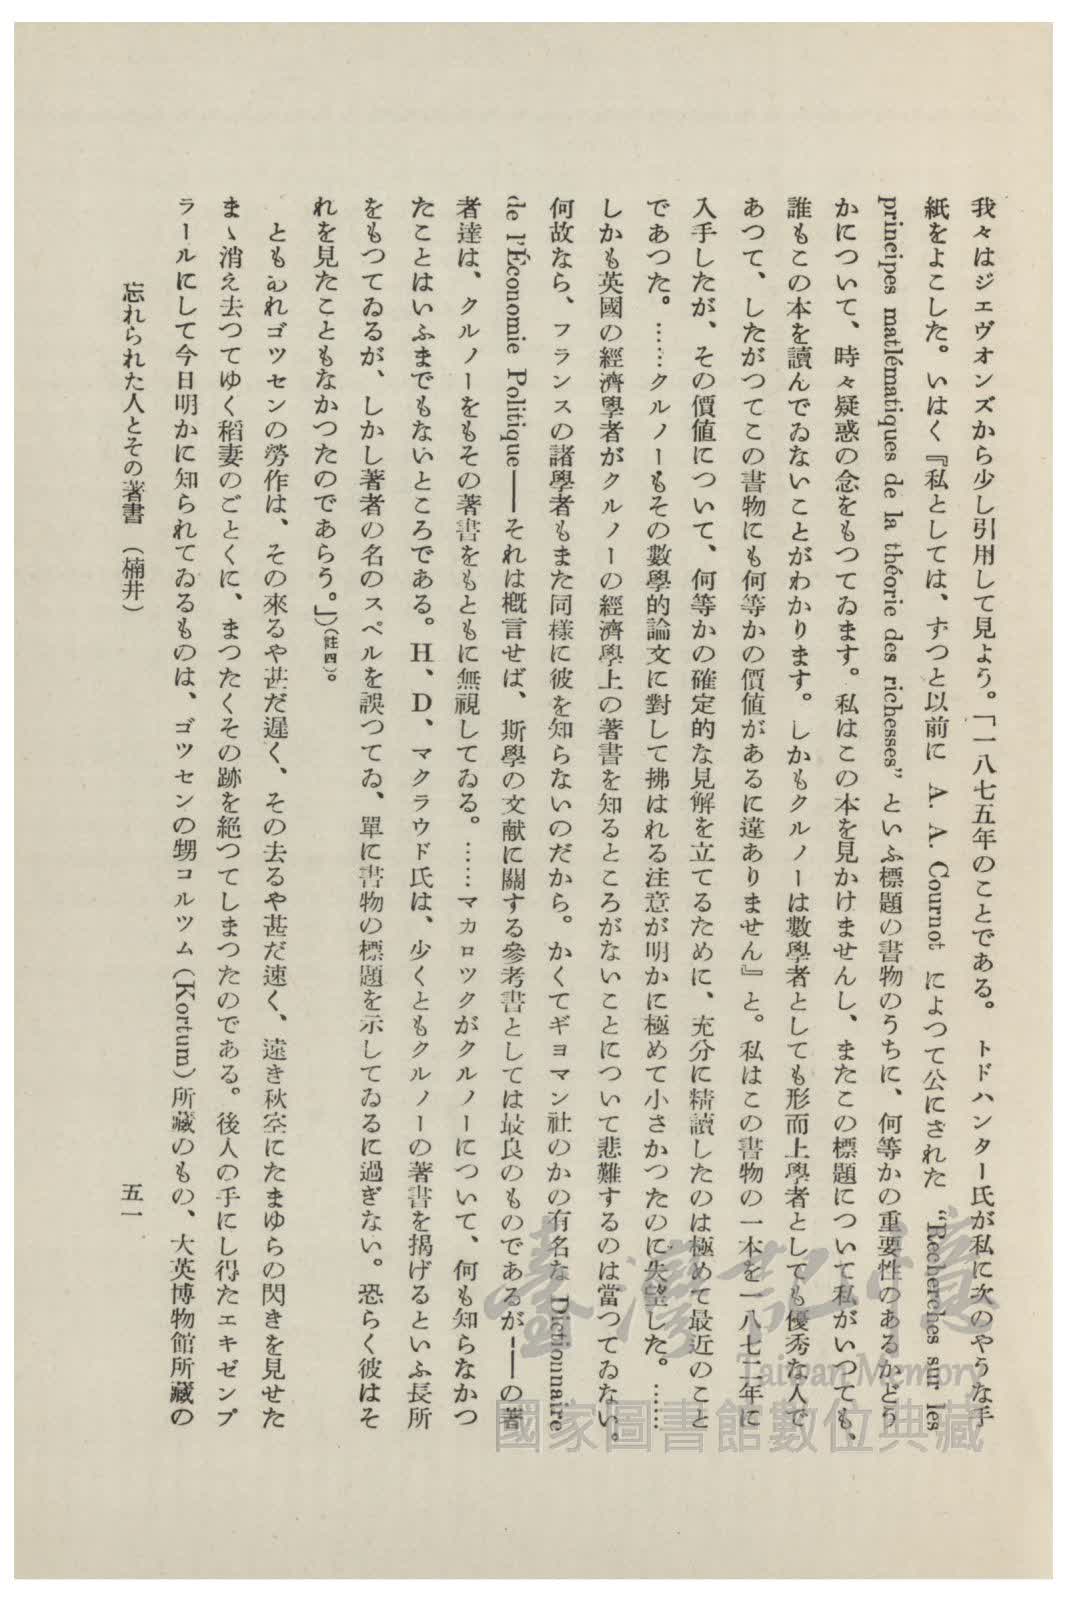 我々はジエヴオンズから少し引用して見よう。「一八七五年のことである。　トドハンター氏が私に次のやうな手
紙をよこした。いはく『私としては、ずつと以前に　A. A. Cournot　によつて公にされた　“Recherches sur les
principes matlématiques de la théorie des richesses”　といふ標題の書物のうちに、何等かの重要性のあるかどう
かについて、時々疑惑の念をもつてゐます。私はこの本を見かけませんし、またこの標題について私がいつても、
誰もこの本を讀んでゐないことがわかります。しかもクルノーは數學者としても形而上學者としても優秀な人で
あつて、したがつてこの書物にも何等かの價値があるに違ありません』と。私はこの書物の一本を一八七二年に
入手したが、その價値について、何等かの確定的な見解を立てるために、充分に精讀したのは極めて最近のこと
であつた。……クルノーもその數學的論文に對して拂はれる注意が明かに極めて小さかつたのに失望した。……
しかも英國の經濟學者がクルノーの經濟學上の著書を知るところがないことについて悲難するのは當つてゐない。
何故なら、フランスの諸學者もまた同樣に彼を知らないのだから。かくてギヨマン社のかの有名な Dictionnaire
de l’Économie Politique——それは槪言せば、斯學の文献に關する參考書としては最良のものであるが——の著
者達は、クルノーをもその著書をもともに無視してゐる。……マカロツクがクルノーについて、何も知らなかつ
たことはいふまでもないところである。H、D、マクラウド氏は、少くともクルノーの著書を揭げるといふ長所
をもつてゐるが、しかし著者の名のスペルを誤つてゐ、單に書物の標題を示してゐるに過ぎない。恐らく彼はそ
れを見たこともなかつたのであらう。」）（註四）。
ともあれゴツセンの勞作は、その來るや甚だ遲く、その去るや甚だ速く、遠き秋空にたまゆらの閃きを見せた
まゝ消え去つてゆく稻妻のごとくに、まつたくその跡を絕つてしまつたのである。後人の手にし得たエキゼンプ
ラールにして今日明かに知られてゐるものは、ゴツセンの甥コルツム（Kortum）所藏のもの、大英博物館所藏の
忘れられた人とその著書　（楠井）
五一
臺灣記憶
Taiwan Memory
國家圖書館數位典藏